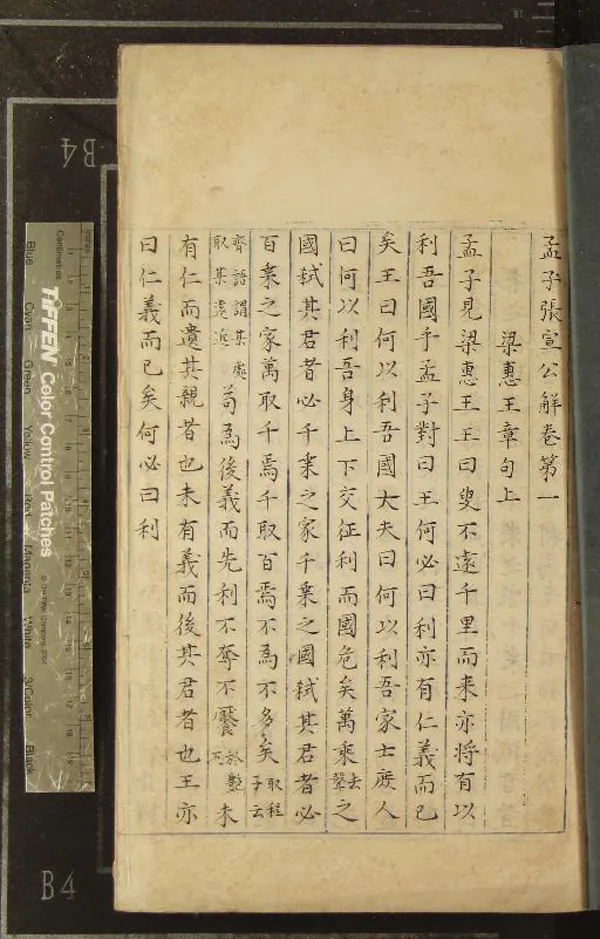 孟子張宣公解卷第一
梁惠王章句上
孟子見梁惠王王曰叟不逺千里而来亦将有以
利吾國乎孟子對曰王何必曰利亦有仁義而已
矣王曰何以利吾國大夫曰何以利吾家士庻人
曰何以利吾身上下交征利而國危矣萬乘去聲之
國弑其君者必千乗之家千乗之國弑其君者必
百乗之家萬取千焉千取百焉不為不多矣取程子云
齊語謂某處取某逺近苟為後義而先利不奪不饜於艷反未
有仁而遺其親者也未有義而後其君者也王亦
曰仁義而已矣何必曰利
B4
B4
TIFFEN Color Control Patches
Centimetres
Blue
Cyan
Green
Yellow
Red
Magenta
White
3/Color
Black